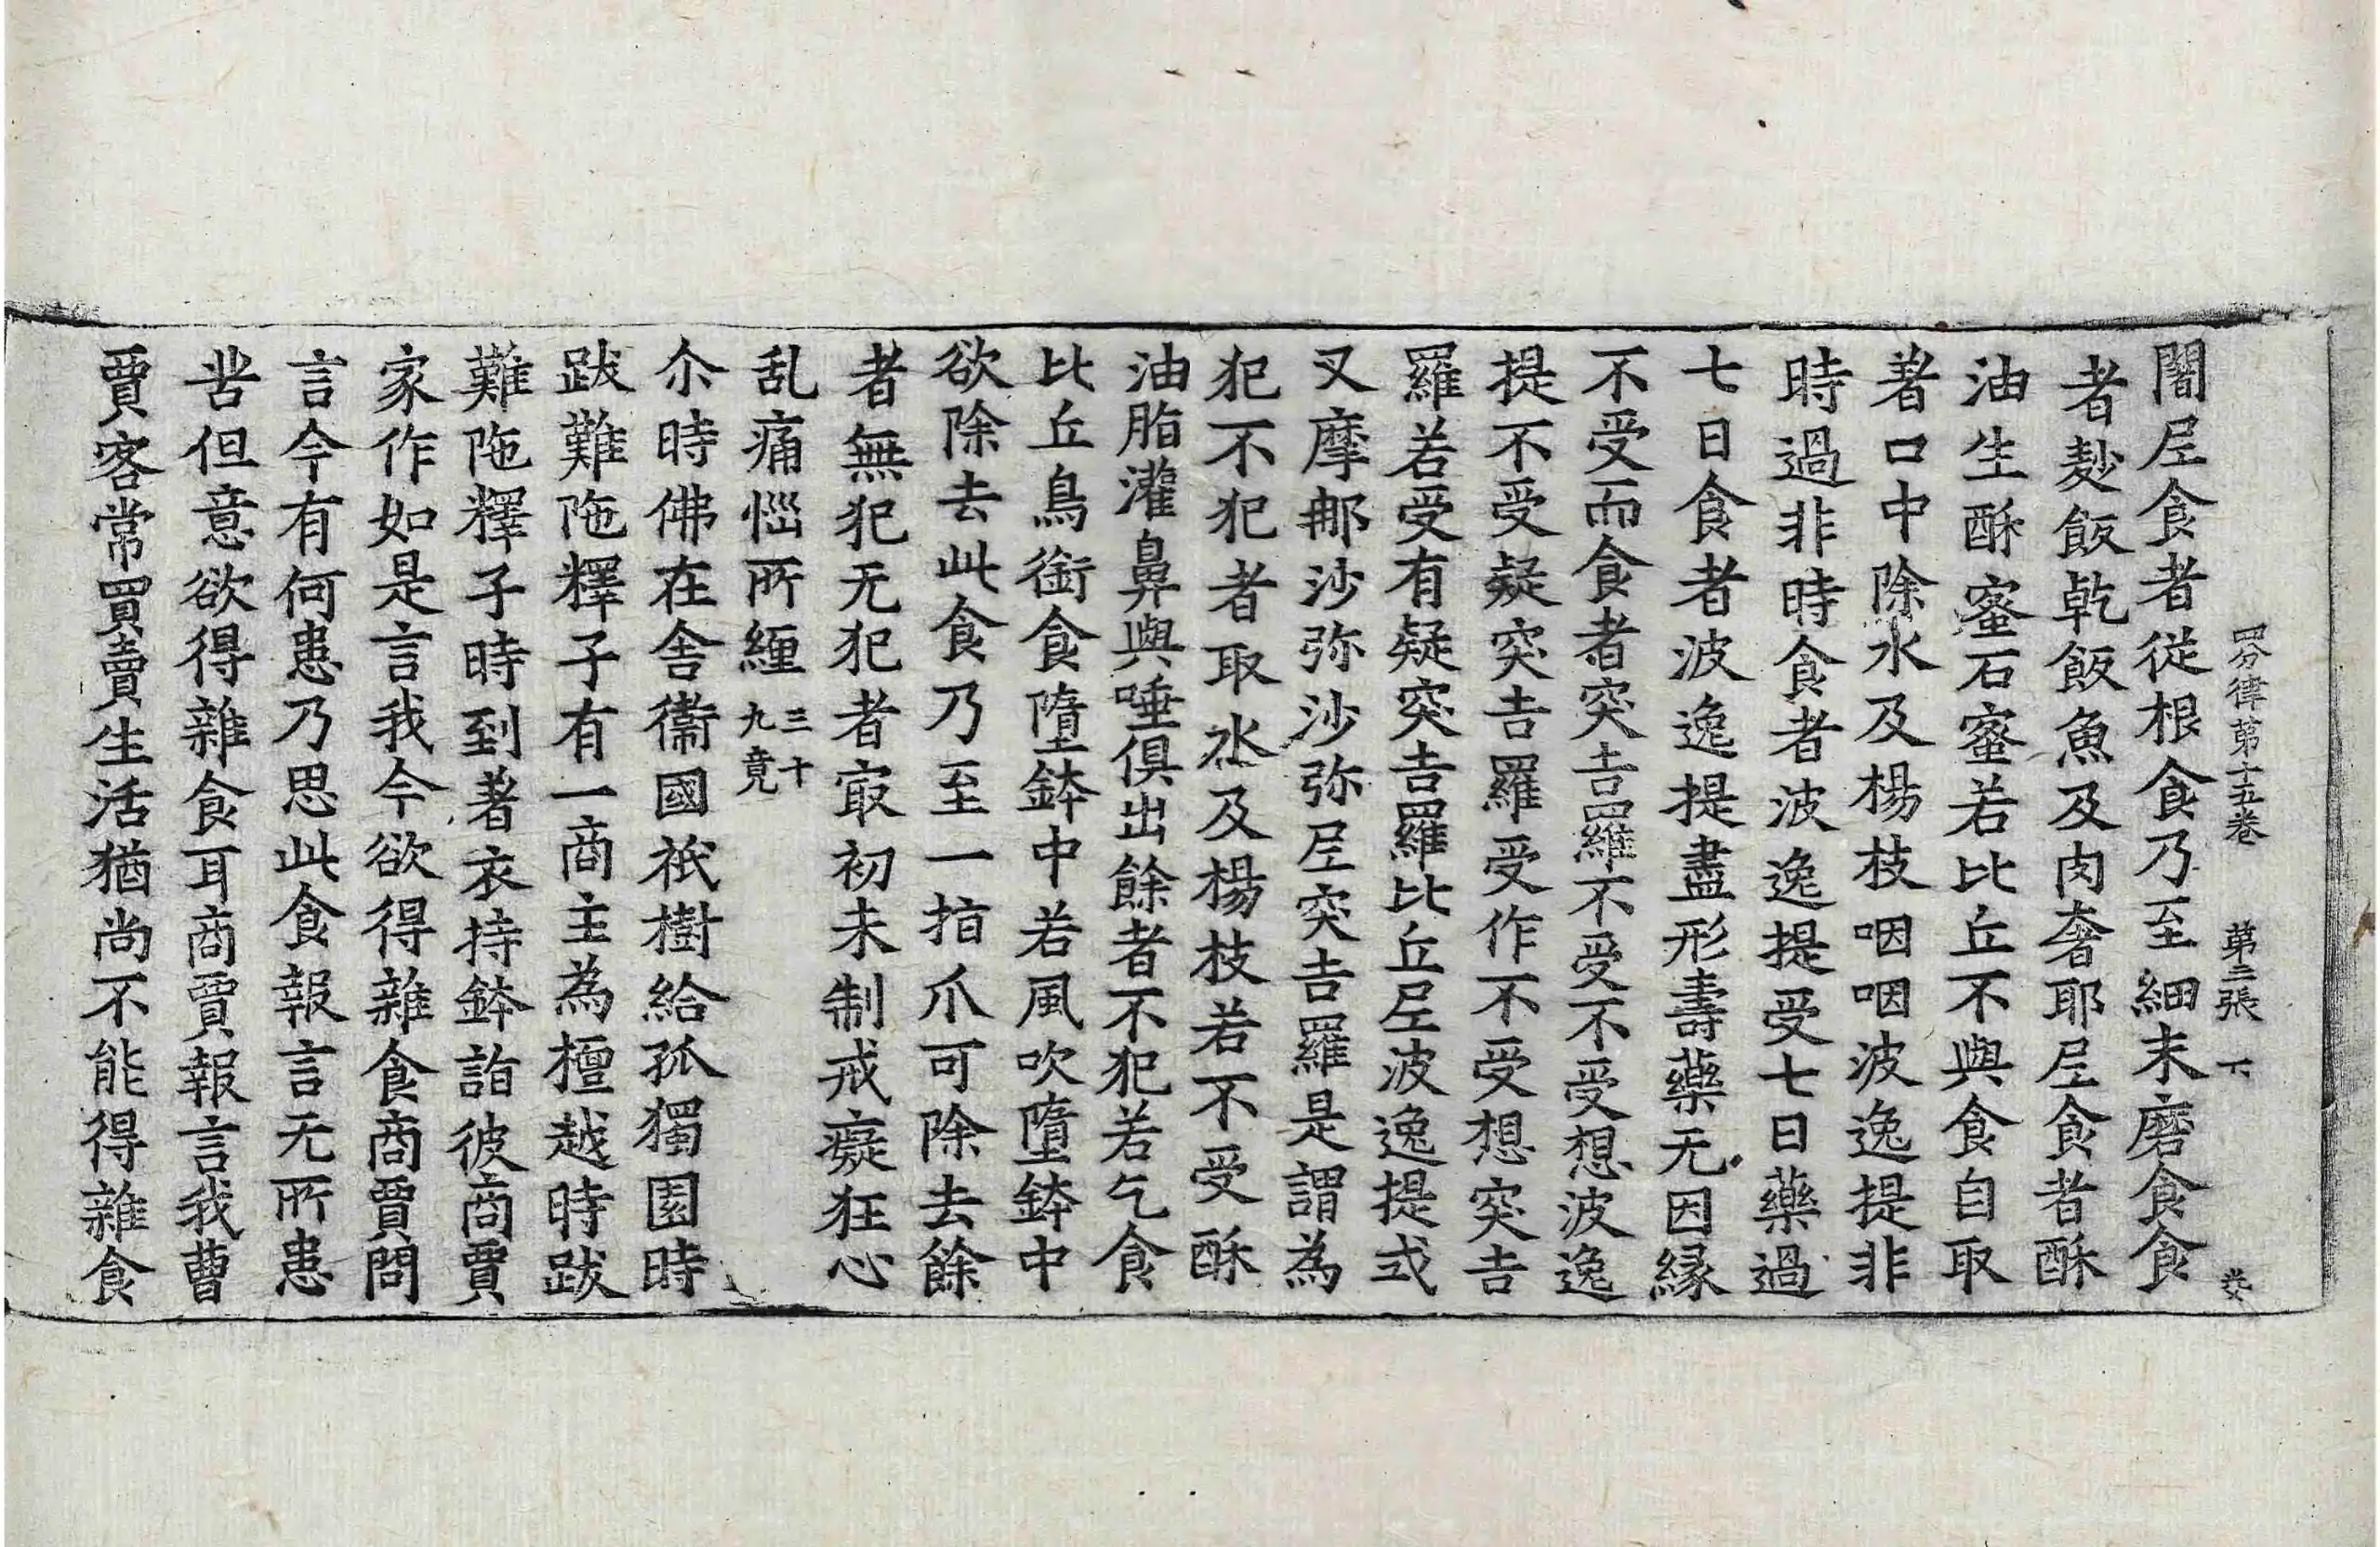 四分律第十五卷 第二張 下
闍𡰱食者從根食乃至細末磨食食
者麨飯乾飯魚及肉奢耶𡰱食者酥
油生酥蜜石蜜若比丘不與食自取
著口中除水及楊枝咽咽波逸提非
時過非時食者波逸提受七日藥過
七日食者波逸提盡形壽藥无因緣
不受而食者突吉羅不受不受想波逸
提不受疑突吉羅受作不受想突吉
羅若受有疑突吉羅比丘𡰱波逸提式
叉摩那沙弥沙弥𡰱突吉羅是謂為
犯不犯者取水及楊枝若不受酥
油脂灌鼻與唾俱出餘者不犯若乞食
比丘鳥銜食墮鉢中若風吹墮鉢中
欲除去此食乃至一指爪可除去餘
者無犯无犯者㝡初未制戒癡狂心
乱痛惱所纏三十九竟
尒時佛在舍衞國祇樹給孤獨園時
跋難陁釋子有一商主為檀越時跋
難陁釋子時到著衣持鉢詣彼商賈
家作如是言我今欲得雜食商賈問
言今有何患乃思此食報言无所患
苦但意欲得雜食耳商賈報言我曹
賈客常買賣生活猶尚不能得雜食